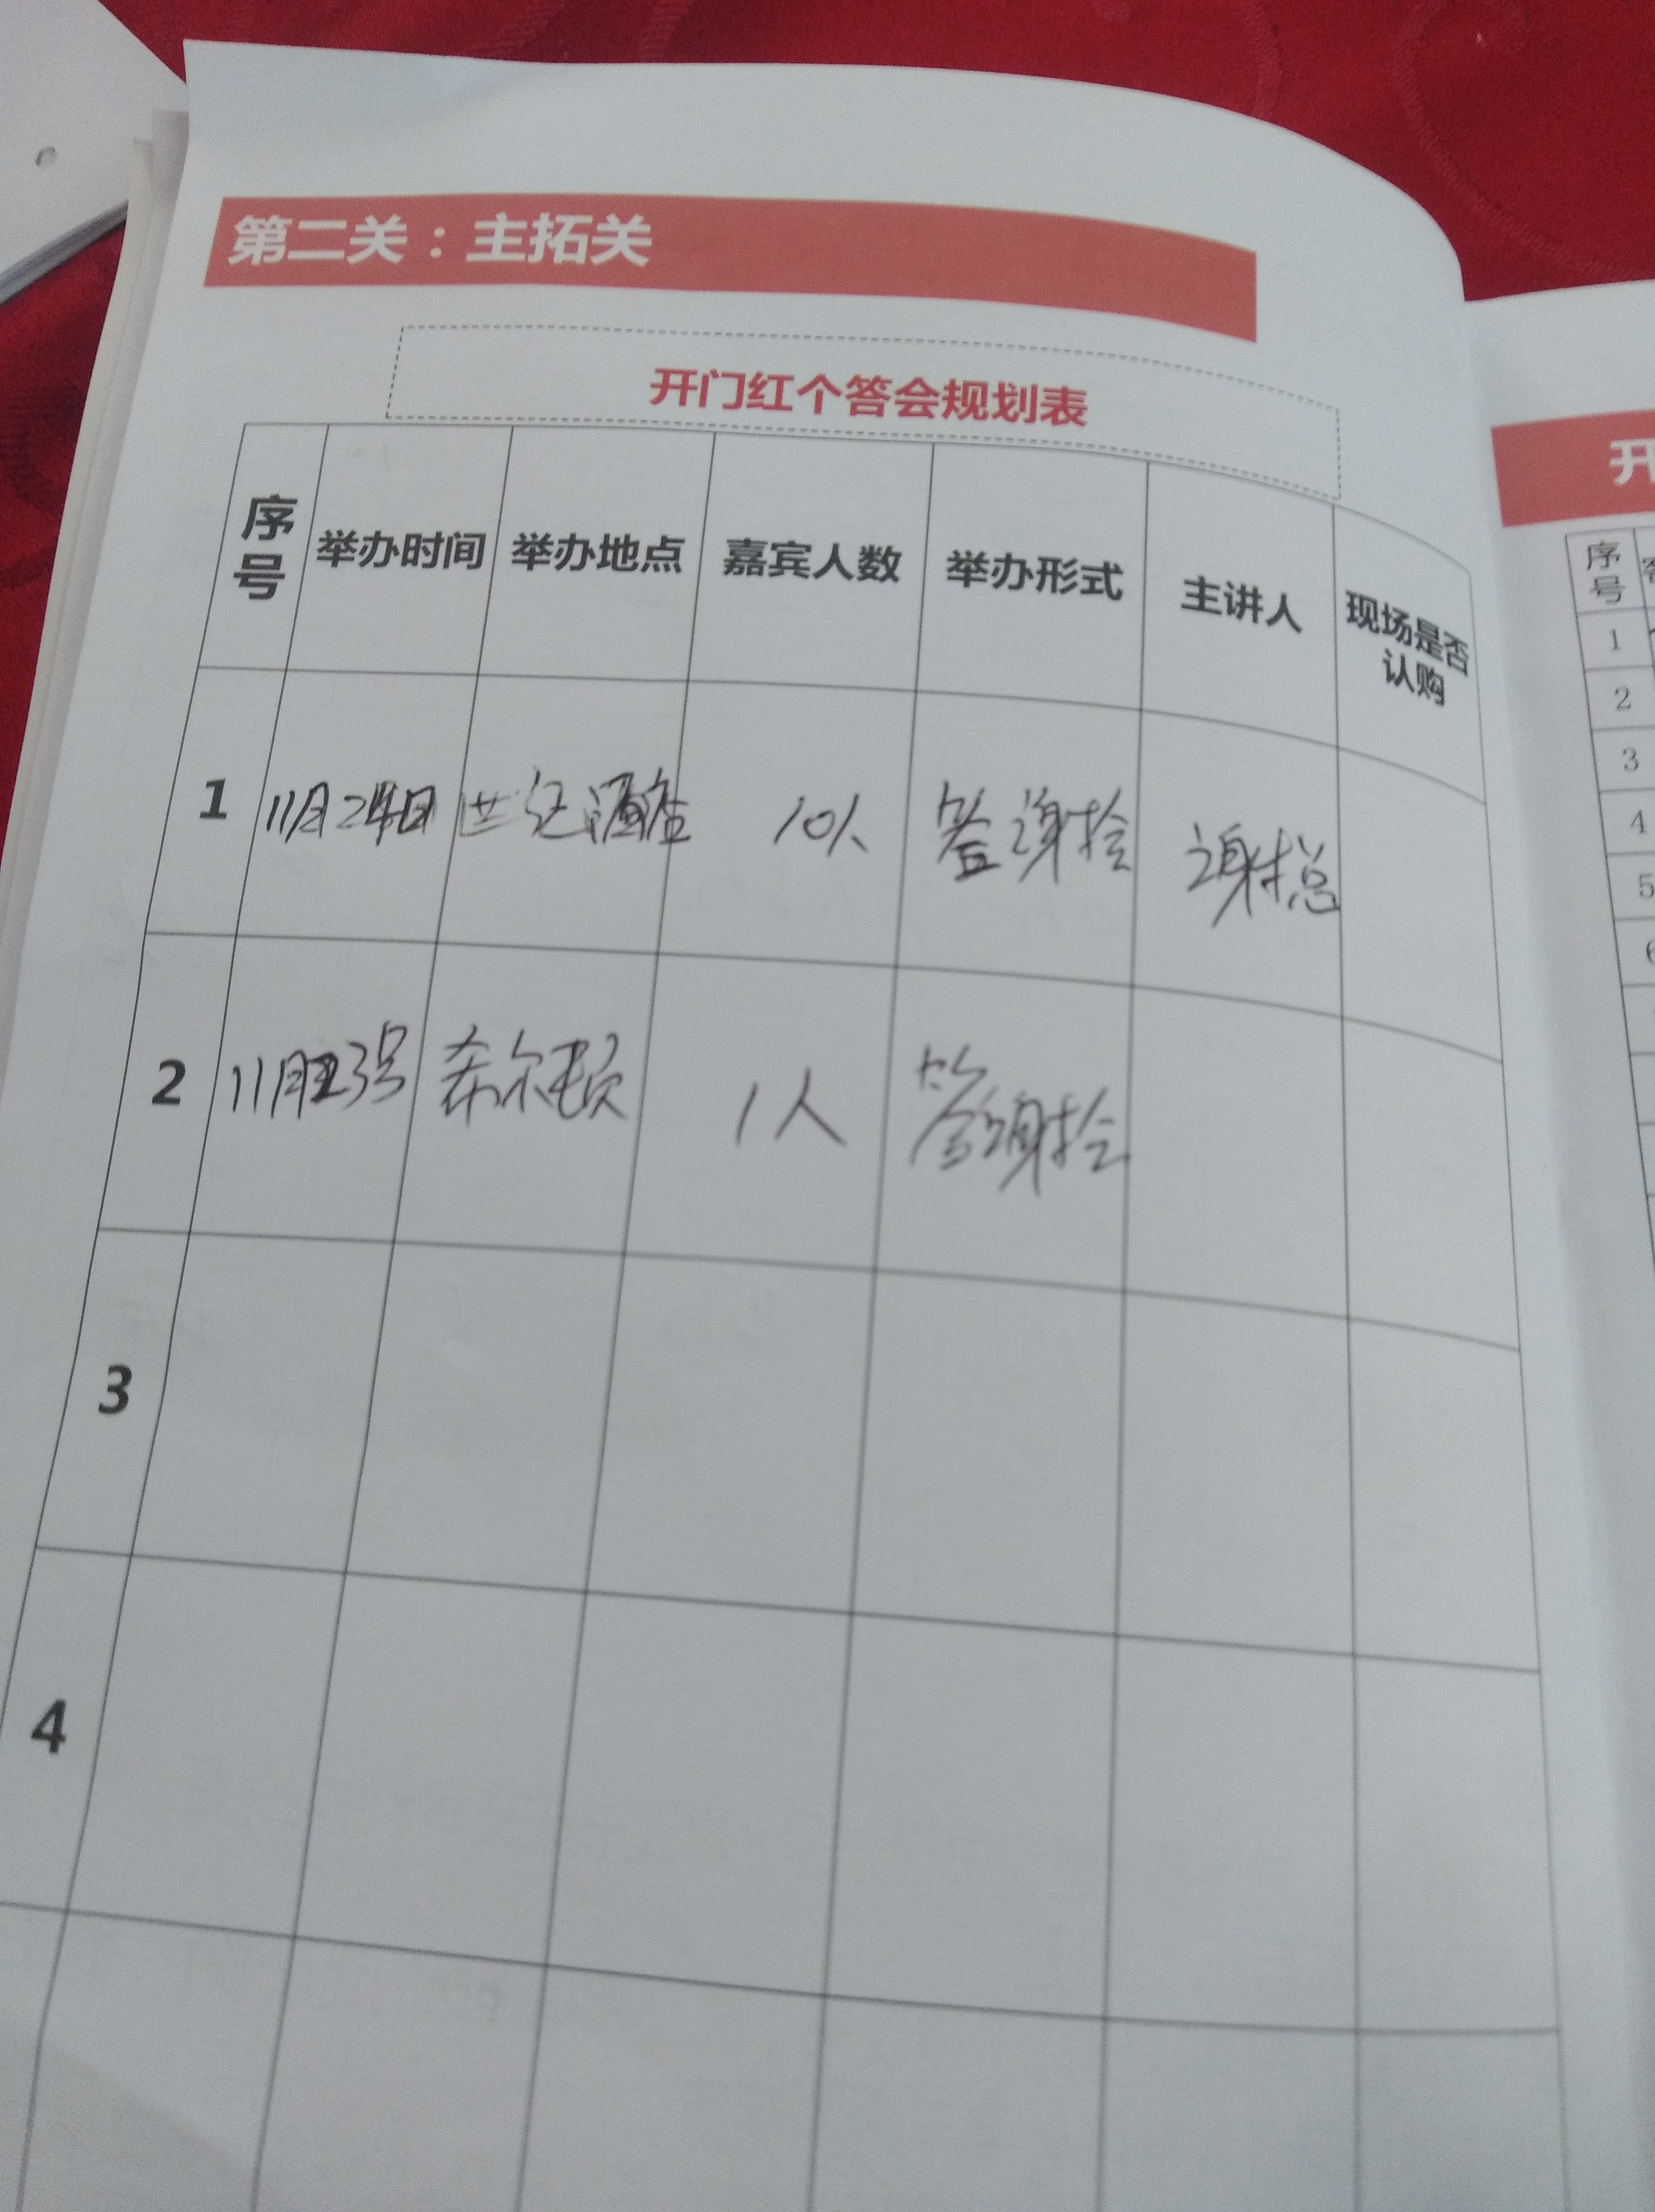 第二关：主拓关
开门红个答会规划表
序号 举办时间 举办地点 嘉宾人数 举办形式 主讲人 现场是否认购
1 11月24日 世纪酒店 10人 答谢会 谢总
2 11月 希尔顿 1人 答谢会
3
4
开
序号
1
2
3
4
5
6